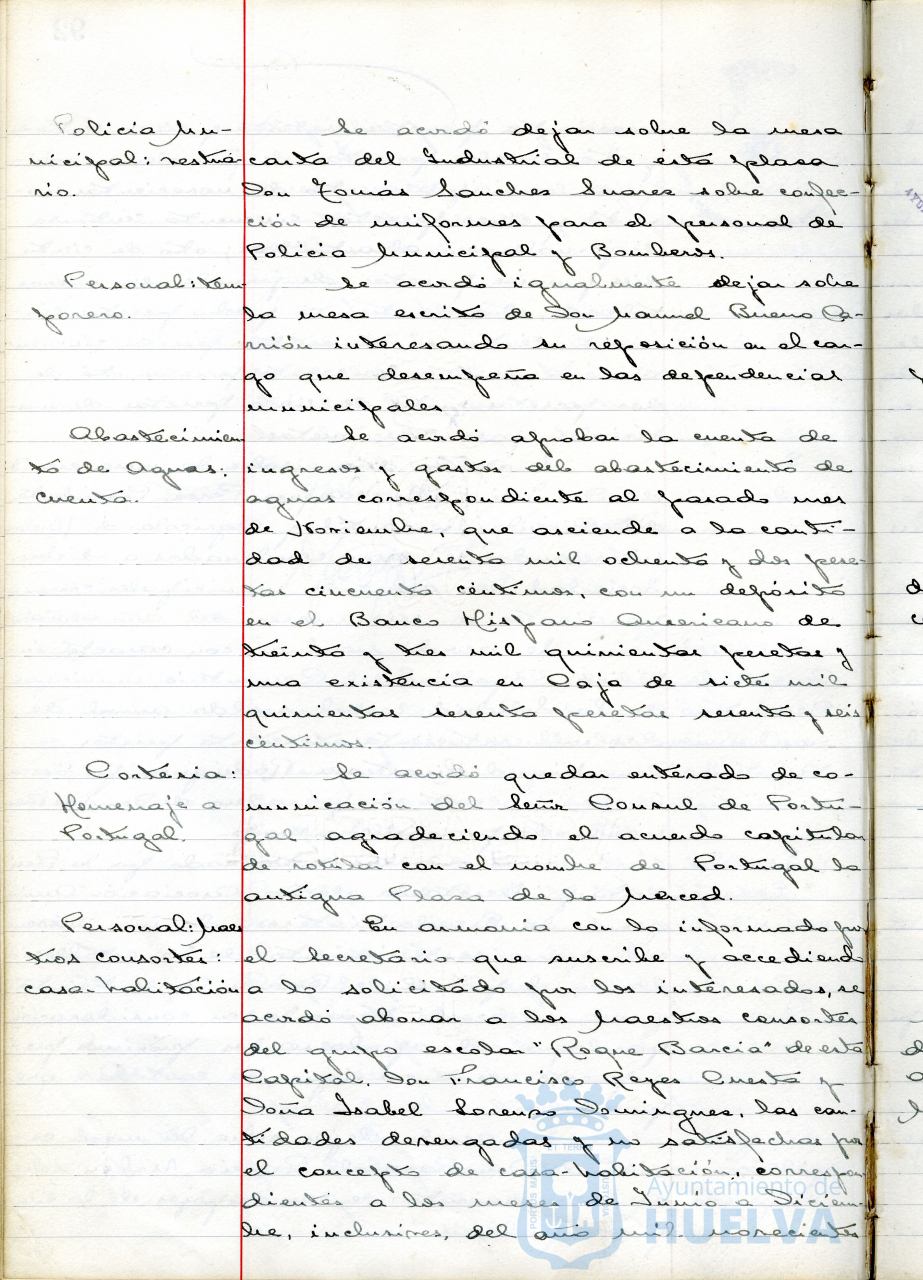 Policia Mu-
nicipal: vestua-
rio.
Se acordó dejar sobre la mesa
carta del Industrial de ésta plasa
Don Tomás Sanches Suares sobre confec-
ción de uniformes para el personal de
Policia Municipal y Bomberos.
Personal: tem-
porero.
Se acordó igualmente dejar sobre
la mesa escrito de Don Manuel Bueno Ca-
rrión interesando su reposición en el car-
go que desempeña en las dependencias
municipales
Abastecimien
to de Aguas:
cuenta.
Se acordó aprobar la cuenta de
ingresos y gastos del abastecimiento de
aguas correspondiente al pasado mes
de Noviembre, que asciende a la canti-
dad de sesenta mil ochenta y dos pese-
tas cincuenta céntimos, con un depósito
en el Banco Hispano Americano de
treinta y tres mil quinientas pesetas y
una existencia en Caja de siete mil
quinientas sesenta pesetas sesenta y seis
céntimos.
Cortesia:
Homenaje a
Portugal.
Se acordó quedar enterado de co-
municación del Señor Consul de Portu-
gal agradeciendo el acuerdo capitular
de rotular con el nombre de Portugal la
antigua Plasa de la Merced.
Personal: Maes
tros consortes:
casa-habitación
En armonia con lo informado por
el Secretario que suscribe y accediendo
a lo solicitado por los interesados, se
acordó abonar a los Maestros consortes
del grupo escolar "Roque Barcia" de esta
Capital, Don Francisco Reyes Cuesta y
Doña Isabel Lorenso Domingues, las can-
tidades devengadas y no satisfechas por
el concepto de casa-habitación, correspon
dientes a los meses de Junio a Diciem-
bre, inclusives, del año mil novecientos
Ayuntamiento de
HUELVA